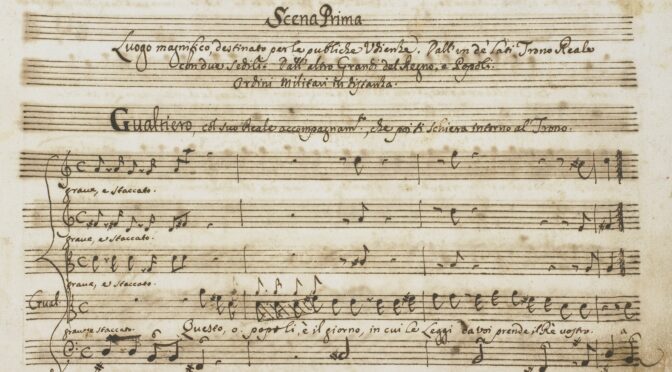 Scena Prima
Luogo magnifico, destinato per le publiche Vdienze. Dall'un de' lati Trono Reale
con due sedili. Dall'altro Grandi del Regno, e Popoli.
Ordini Militari in distanza.
Gualtiero, col suo Reale accompagnam.to, che poi si schiera intorno al Trono.
grave, e staccato.
grave, e staccato.
grave, e staccato.
Gual
grave, e staccato.
Questo, o popoli, è il giorno, in cui le Leggi da voi prende il Rè vostro. a